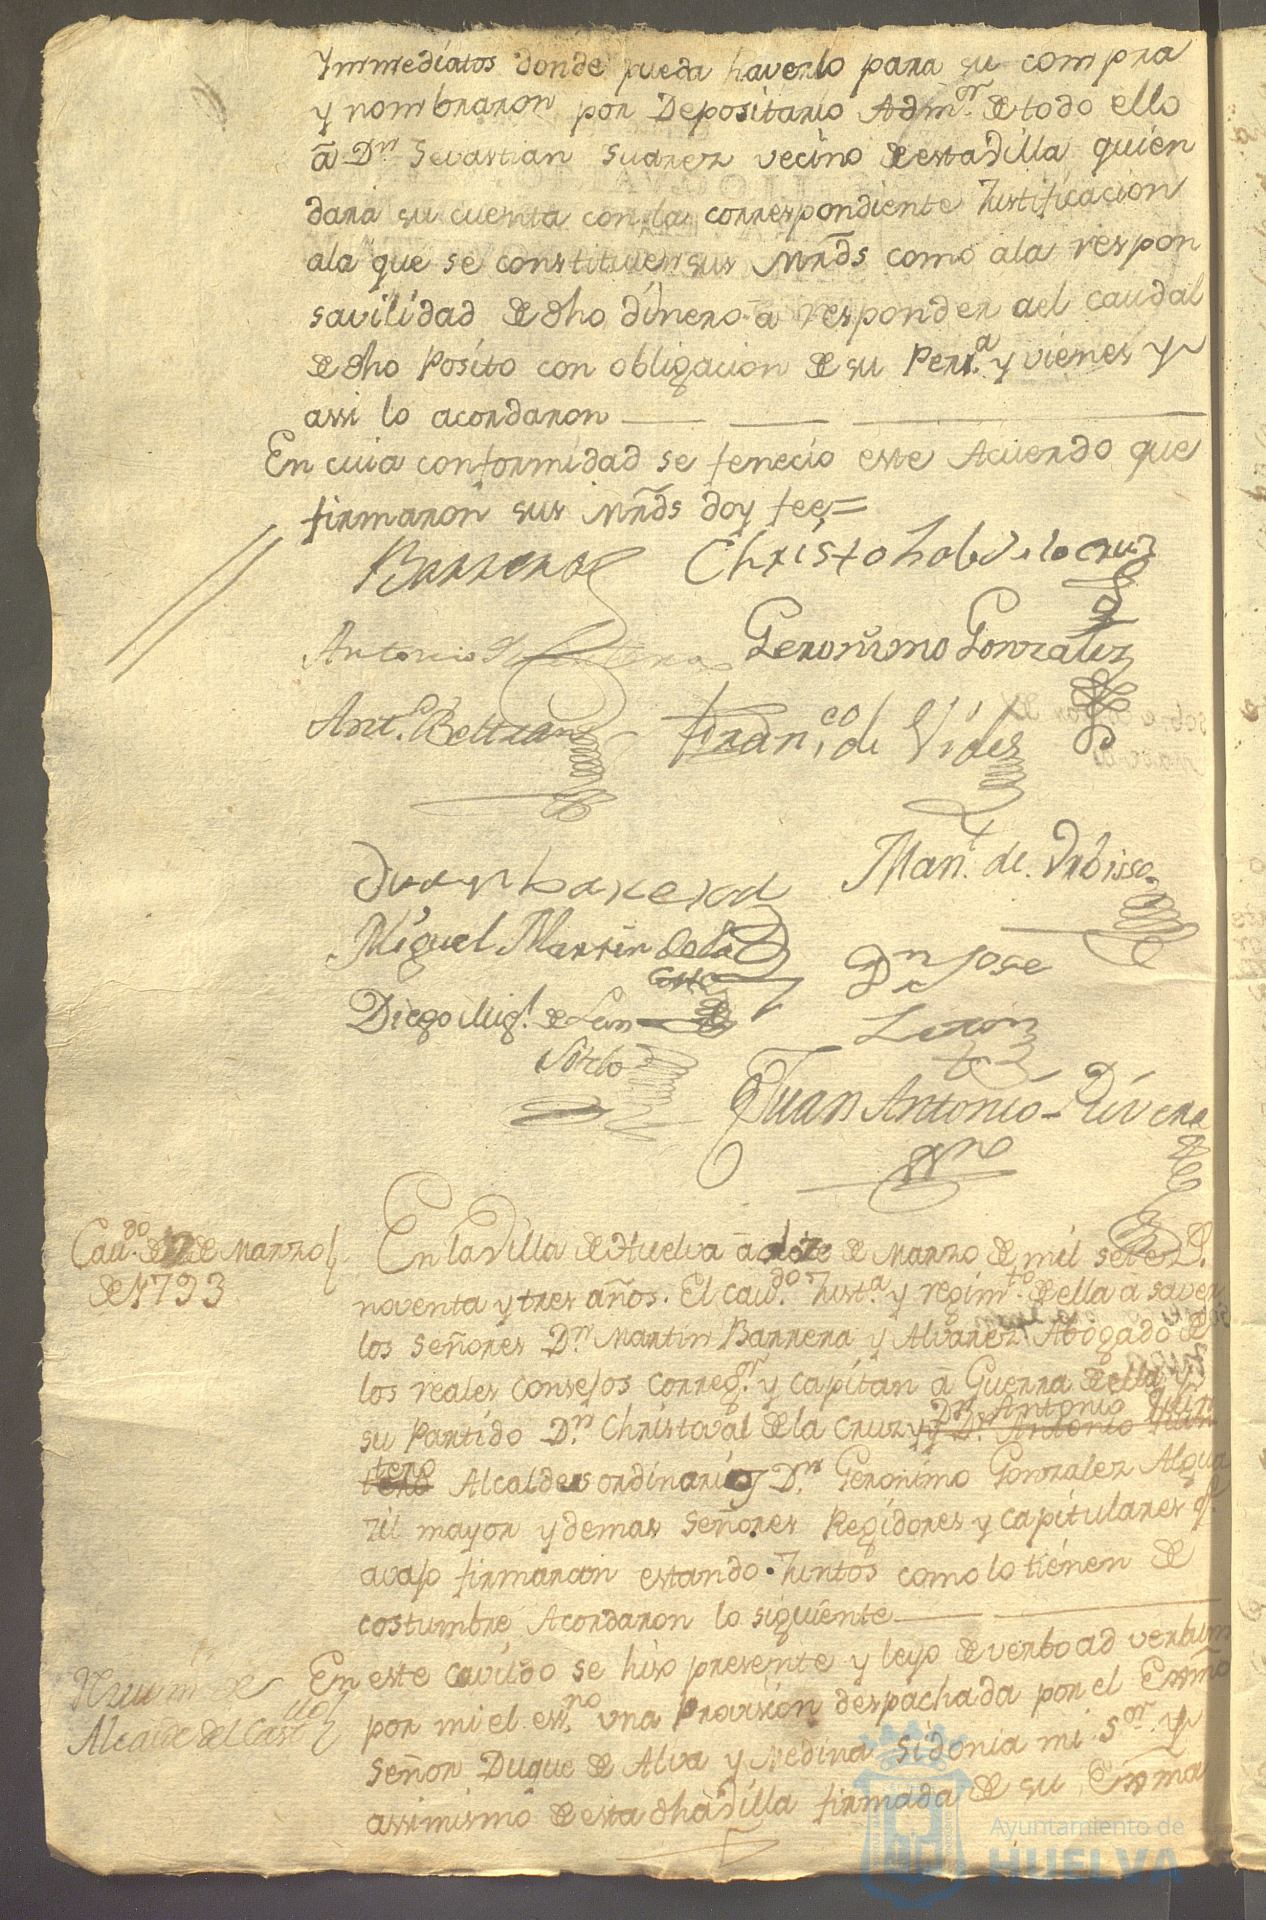 Ymmediatos donde pueda haverlo para su compra
y nombraron por Depositario Admor. de todo ello
â Dn Sevastian Suarez vecino de esta Villa quien
dara su cuenta con la correspondiente Justificacion
ala que se constituien sus Mrds como ala respon
savilidad de dho dinero â responder a el caudal
de dho Posito con obligacion de su Pers.a y vienes y
assi lo acordaron
En cuia conformidad se fenecio este Acuerdo que
firmaron sus Mrds doy fee=
Barrera
Christobal de la Cruz
Antonio
Geronimo Gonzalez
Anto. Beltran
Franco. de Vides
Juan
Man.l de
Miguel Martin de la
Dn Jose
Diego Migl. de Leon
Sotelo
Juan Antonio Rivera
ssno
Cavdo. de de Marzo
de 1793
En la Villa de Huelva â de Marzo de mil setez.
noventa y tres años. El cavdo. Justa. y regimto. de ella a saver
los Señores Dn Martin Barrera y Alvarez Abogado de
los reales Consejos Corregor. y Capitan â Guerra de ella y
su Partido Dn Christoval de la Cruz y Dn Antonio
tero Alcaldes ordinarios Dn Geronimo Gonzalez Algua
zil mayor y demas Señores Regidores y capitulares q.
avajo firmaran estando Juntos como lo tienen de
costumbre Acordaron lo siguiente
Alcaide del Castllo
En este cavildo se hiso presente y leyo de verbo ad verbum
por mi el essno. una Provision despachada por el Exsmo
Señor Duque de Alva y Medina Sidonia mi Sor. y
assimismo de esta dha Villa firmada de su Exma
Ayuntamiento de
HUELVA